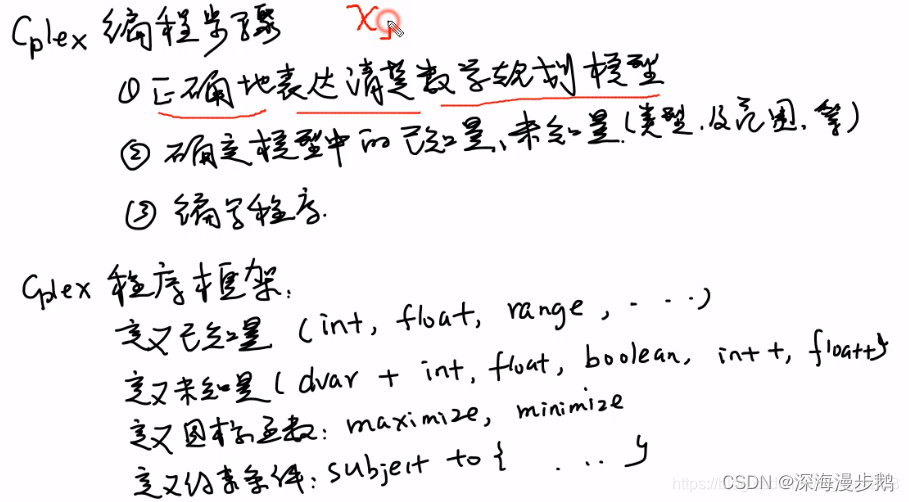 Cplex 编程步骤
x
① 正确地表达清楚数学规划模型
② 确定模型中的已知量、未知量(类型、及范围、等)
③ 编写程序.
Cplex 程序框架:
定义已知量 (int, float, range, ...)
定义未知量 (dvar + int, float, boolean, int+, float+)
定义目标函数: maximize, minimize
定义约束条件: subject to { ... }
CSDN @深海漫步鹅